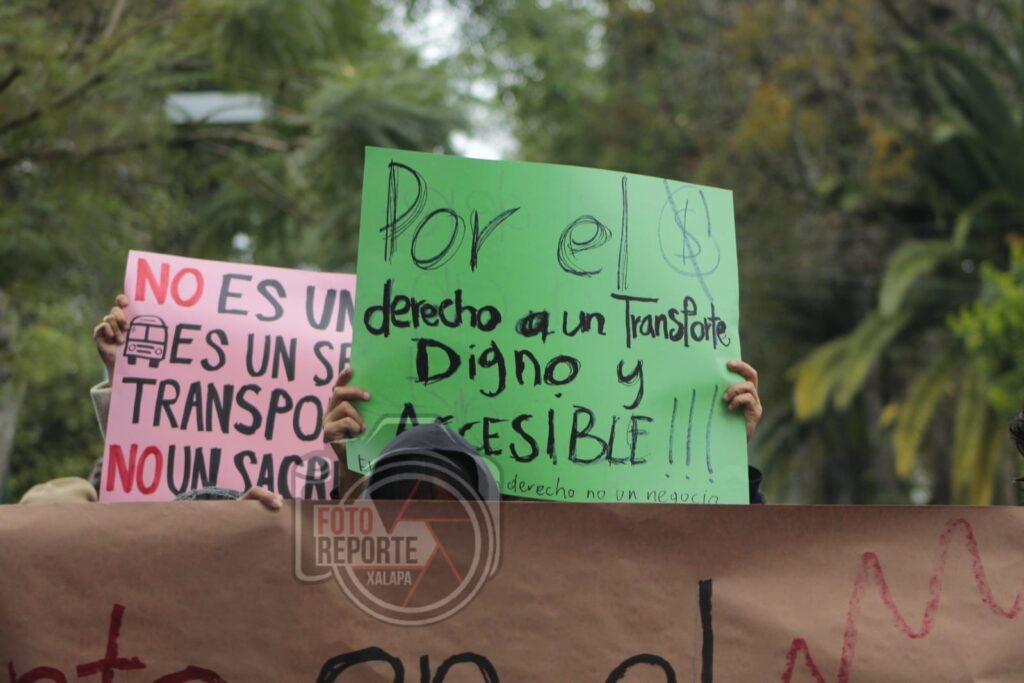 NO ES UN
ES UN SE
TRANSPO
NO UN SACRI
Por el $
derecho a un Transporte
Digno y
ACCESIBLE!!!
derecho no un negocio
FOTO
REPORTE
XALAPA
en el